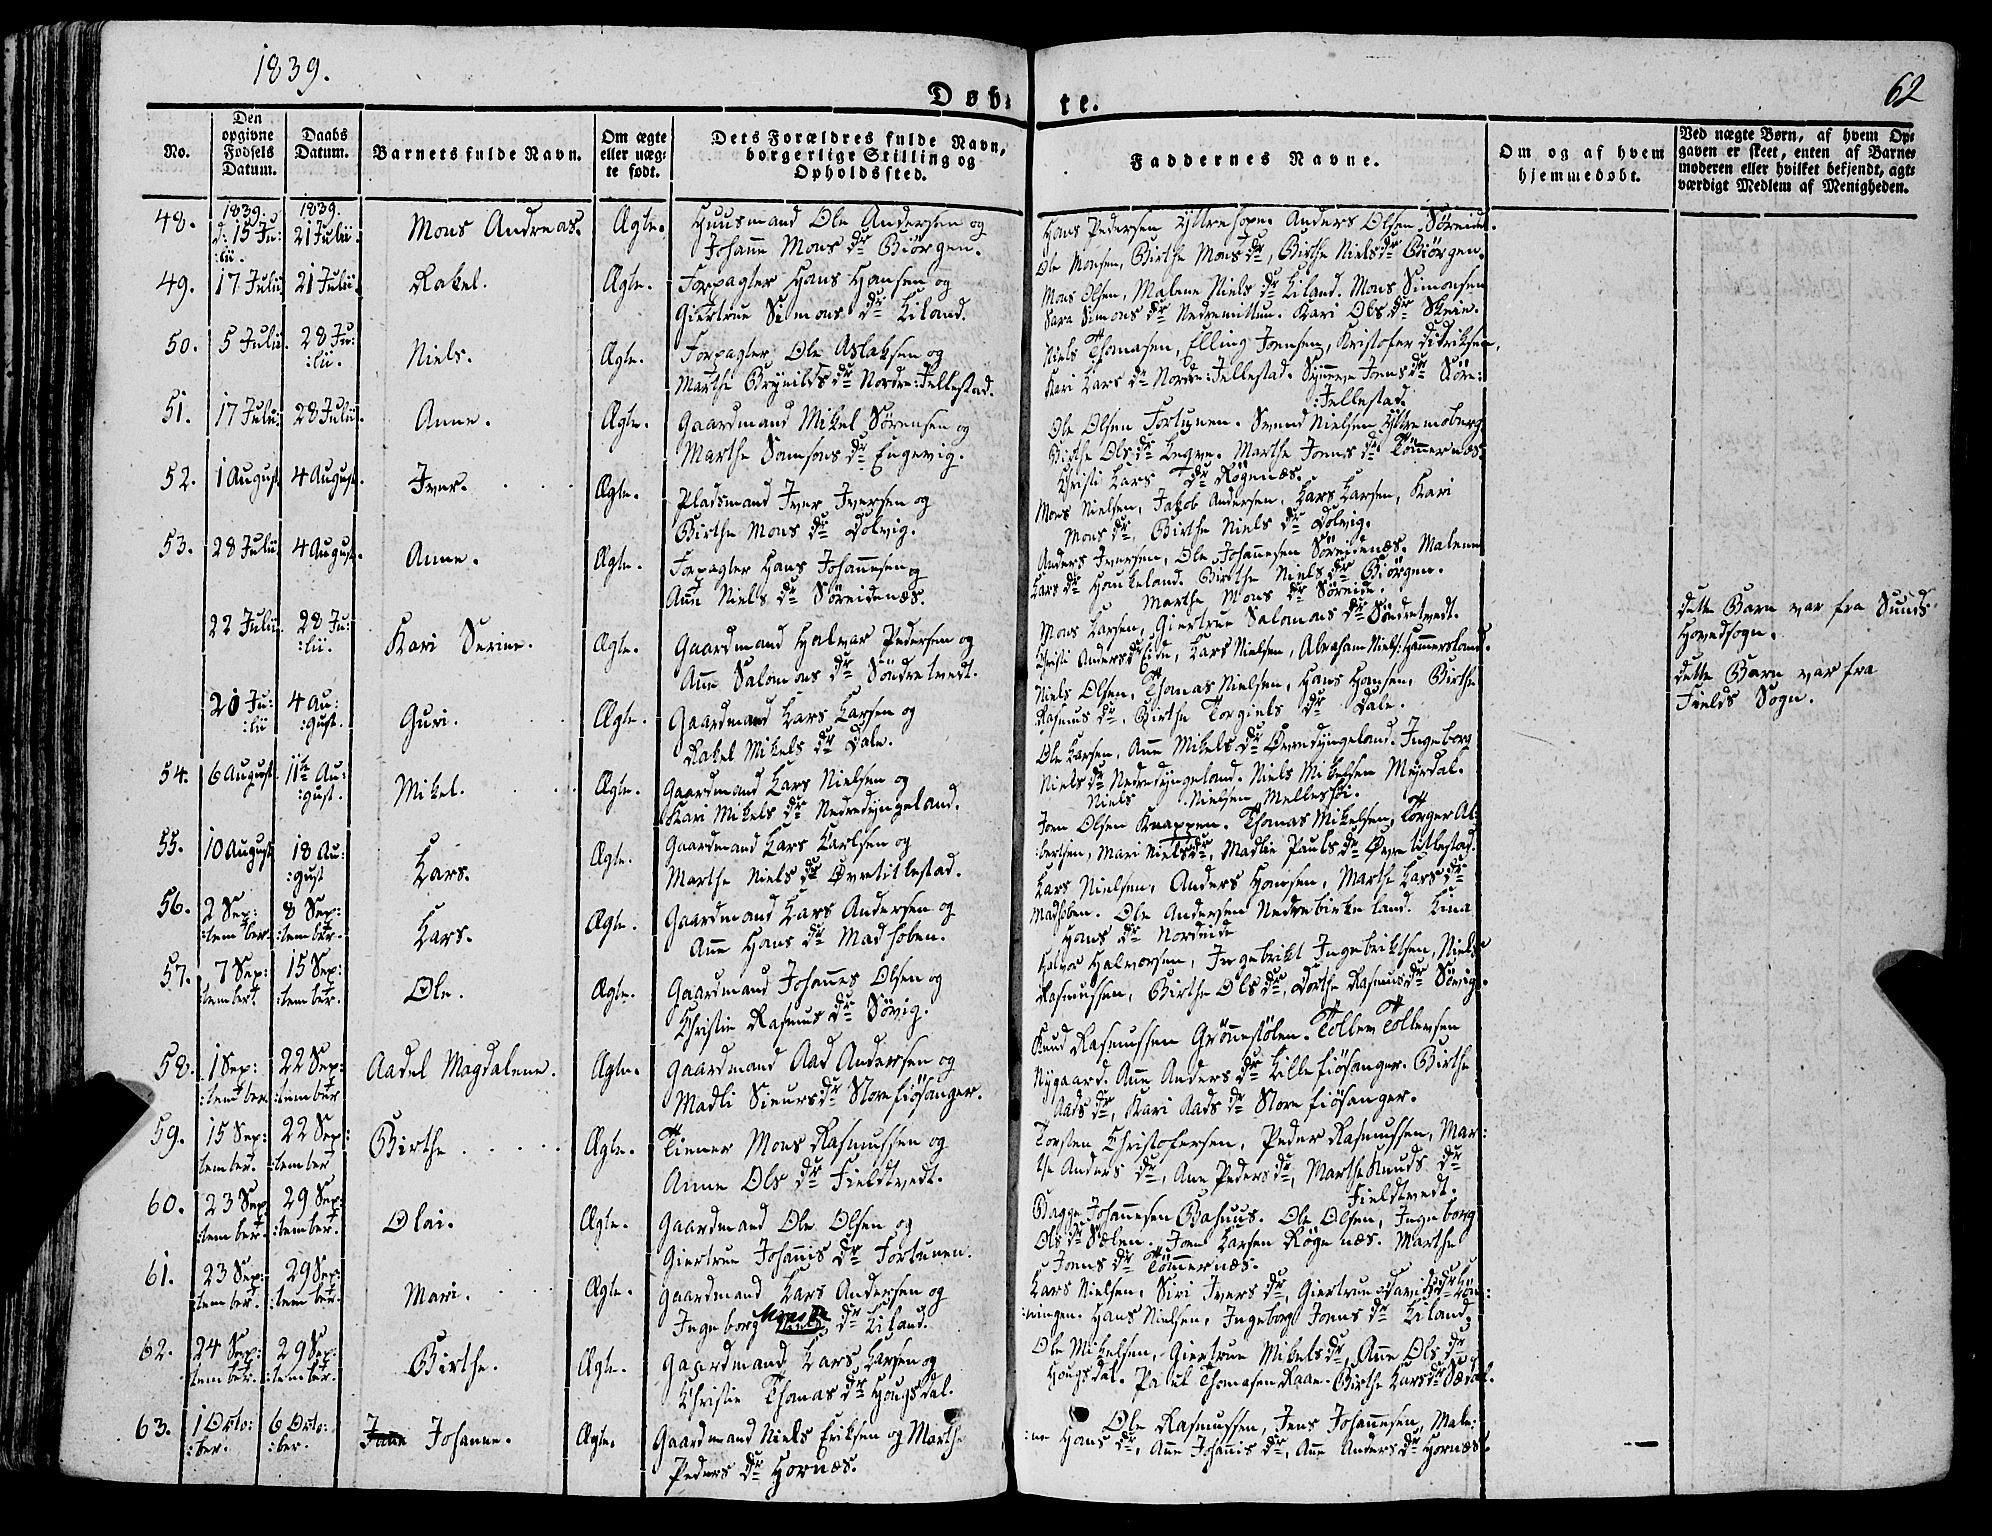 1839.
62
Døb-
te.
No.
Den
opgivne
Fødsels
Datum.
Daabs
Datum.
Barnets fulde Navn.
Om ægte
eller uæg-
te født.
Dets Forældres fulde Navn,
borgerlige Stilling og
Opholdssted.
Faddernes Navne.
Om og af hvem
hjemmedøbt.
Ved uægte Børn, af hvem Op-
gaven er skeet, enten af Barne-
moderen eller hvilket bekjendt, agt-
værdigt Medlem af Menigheden.
48.
1839.
d: 15 Ju:
:lii.
1839.
21 Julii.
Mons Andreas.
Ægte.
Huusmand Ole Andersen og
Johanne Mons dr Biörgen.
Hans Pedersen Yttrehope. Anders Olsen Söreide.
Ole Monsen, Birthe Mons dr, Birthe Niels dr Biörgen.
49.
17 Julii
21 Julii.
Rakel.
Ægte.
Forpagter Hans Hansen og
Giertrue Simons dr Liland.
Mons Olsen, Malene Niels dr Liland. Mons Simonsen
Sara Simons dr Nedremittun. Kari Ols dr Skeie.
50.
5 Julii.
28 Ju:
:lii.
Niels.
Ægte.
Forpagter Ole Aslaksen og
Marthe Brynilds dr Nordre:Jellestad.
Niels Thomasen, Elling Joensen, Kristofer Didriksen,
Kari Lars dr Nordre:Jellestad. Synneve Joens dr Söre:
:Jellestad.
51.
17 Julii
28 Julii.
Anne.
Ægte.
Gaardmand Mikel Sörensen og
Marthe Samsons dr Engevig.
Ole Olsen Fortunen. Svend Nielsen Yttremoberg
Birthe Ols dr Legve. Marthe Joens dr Tömmernæs.
Christi Lars dr Rögenæs.
52.
1 August
4 August.
Iver.
Ægte.
Pladsmand Iver Iversen og
Birthe Mons dr Dolvig.
Mons Nielsen, Jakob Andersen, Lars Larsen, Kari
Mons dr, Birthe Niels dr Dolvig.
53.
28 Julii
4 August.
Anne.
Ægte.
Forpagter Hans Johannesen og
Anne Niels dr Söreidenæs.
Anders Iversen, Ole Johannesen Söreidenæs. Malene
Lars dr Haukeland. Birthe Niels dr Biörgen.
Marthe Mons dr Söreide.
22 Julii.
28 Ju:
:lii.
Kari Serine.
Ægte.
Gaardmand Halvar Pedersen og
Anne Salomons dr Söndretvedt.
Mons Larsen, Giertrue Salomons dr Söndretvedt.
Christi Anders dr Eide, Lars Nielsen, Abraham Niels: Hammersland.
dette Barn var fra Sunds
Hovedsogn.
20 Ju:
:lii
4 Au:
:gust.
Guri.
Ægte.
Gaardmand Lars Larsen og
Rakel Mikels dr Dale.
Niels Olsen, Thomas Nielsen, Hans Hansen, Birthe
Rasmus dr, Birthe Torgiels dr Dale.
dette Barn var fra
Fields Sogn.
54.
6 August.
11te Au:
:gust.
Mikel.
Ægte.
Gaardmand Lars Nielsen og
Kari Mikels dr Nedredyngeland.
Ole Larsen, Anne Mikels dr Övredyngeland. Ingeborg
Niels dr Nedredyngeland. Niels Mikelsen Myrdal.
Niels Nielsen
55.
10 August
18 Au:
:gust
Lars.
Ægte.
Gaardmand Lars Karlsen og
Marthe Niels dr Övretitlestad.
Joen Olsen Knappen. Thomas Mikelsen, Torger Al-
bertsen, Mari Niels dr, Madlie Pauls dr Övre titlestad.
56.
2 Sep:
:tember.
8 Sep:
:tember.
Lars.
Ægte.
Gaardmand Lars Andersen og
Anne Hans dr Madhoben.
Lars Nielsen, Anders Hansen, Marthe Lars dr
Madhoben. Ole Andersen Nedrebirkeland. Lina
Hans dr Nordeide
57.
7 Sep:
:tember.
15 Sep:
:tember.
Ole.
Ægte.
Gaardmand Johannes Olsen og
Christie Rasmus dr Sövig.
Halvor Halvorsen, Ingebrikt Ingebriktsen, Niels
Rasmussen, Birthe Ols dr, Dorthe Rasmus dr Sövig.
58.
1 Sep:
:tember
22 Sep:
:tember
Aadel Magdalene.
Ægte.
Gaardmand Aad Andersen og
Madli Sieurs dr Store fiösanger.
Knud Rasmussen Grönnestölen. Tollev Tollevsen
Nygaard. Anne Anders dr Lille fiösanger. Birthe
Aads dr, Kari Aads dr Store fiösanger.
59.
15 Sep:
tember.
22 Sep:
:tember
Birthe
Ægte.
Tiener Mons Rasmussen og
Anne Ols dr Fieldtvedt.
Torsten Christofersen, Peder Rasmussen, Mar:
the Anders dr, Ane Peders dr, Marthe Knuds dr
Fieldtvedt.
60.
23 Sep
:tember.
29 Sep:
:tember.
Olai.
Ægte.
Gaardmand Ole Olsen og
Giertrue Johannis dr Fortunen.
Bagge Johannesen Bahuus. Ole Olsen, Ingeborg
Ols dr Sælen. Joen Larsen Rögenæs. Marthe
Joens dr Tömmernæs.
61.
23 Sep:
:tember.
29 Sep:
:tember.
Mari.
Ægte.
Gaardmand Lars Andersen og
Ingeborg Mons dr Liland.
Lars Nielsen, Siri Ivers dr, Giertrue Davids dr Lön:
:ningen. Hans Nielsen, Ingeborg Joens dr Liland.
62.
24 Sep:
tember.
29 Sep:
:tember.
Birthe.
Ægte.
Gaardmand Lars Larsen og
Christie Thomas dr Hougsdal.
Ole Mikelsen, Giertrue Mikels dr, Anne Ols dr
Hougsdal. Paul Thomasen Raae. Birthe Lars dr Sædal.
63.
1 Octo:
:ber.
6 Octo:
:ber.
Janne Johanne.
Ægte.
Gaardmand Niels Eriksen og Marthe
Peders dr Hornæs.
Ole Rasmussen, Jens Johannesen, Male:
:ne Hans dr, Anne Johannis dr, Anne Anders dr Hornæs.